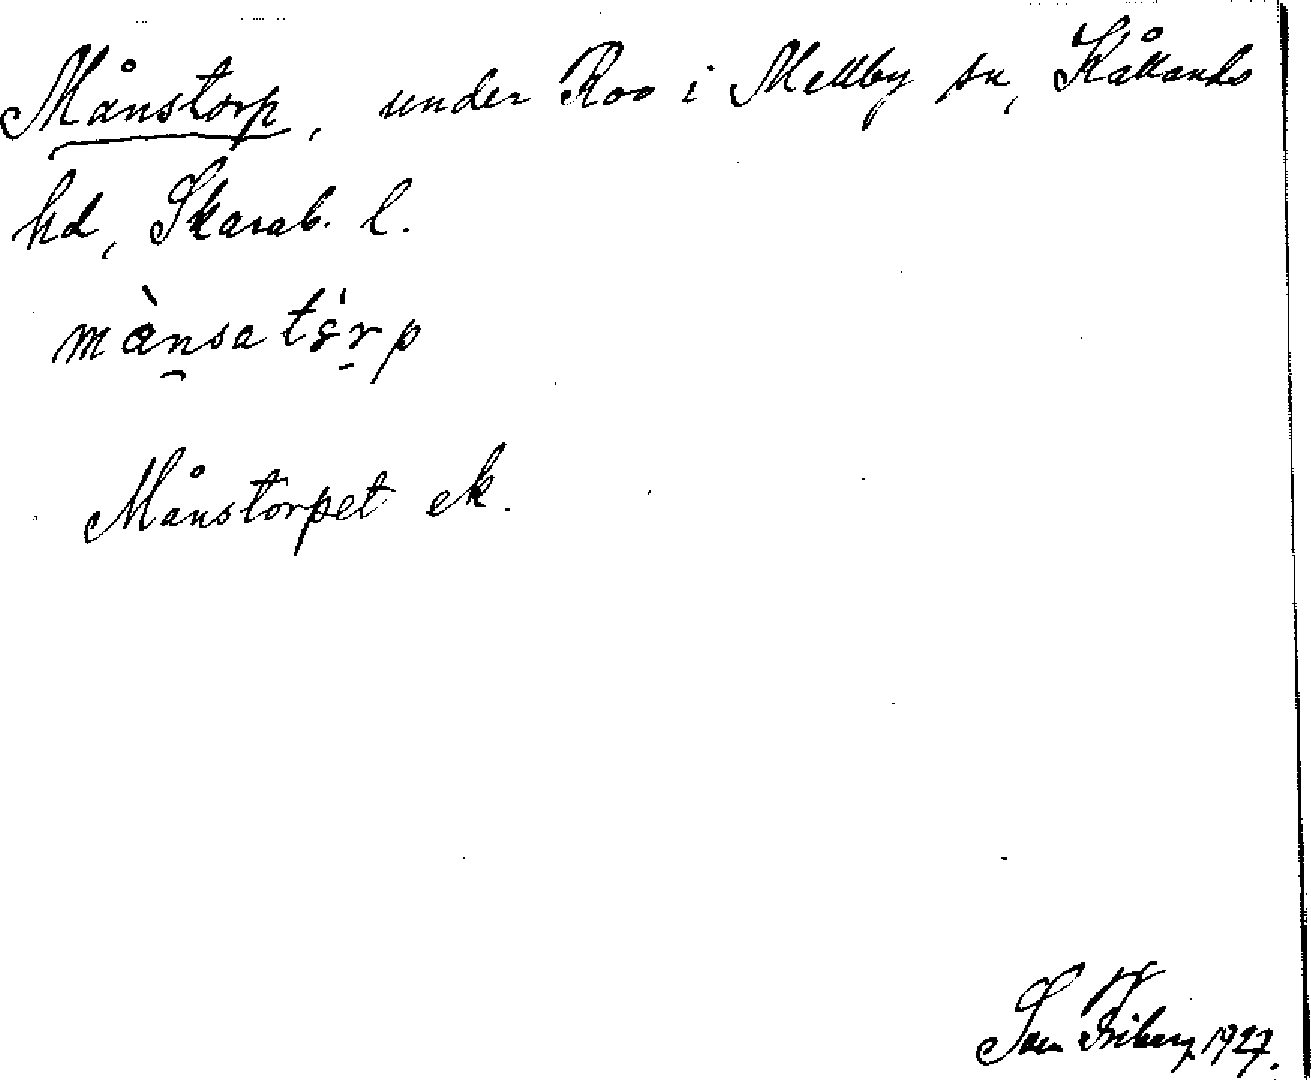 Månstorp, under Roo i Mellby sn, Kållands
hd, Skarab. l.
mànsatǿrp
Månstorpet ek.
Sven Friberg 1927.